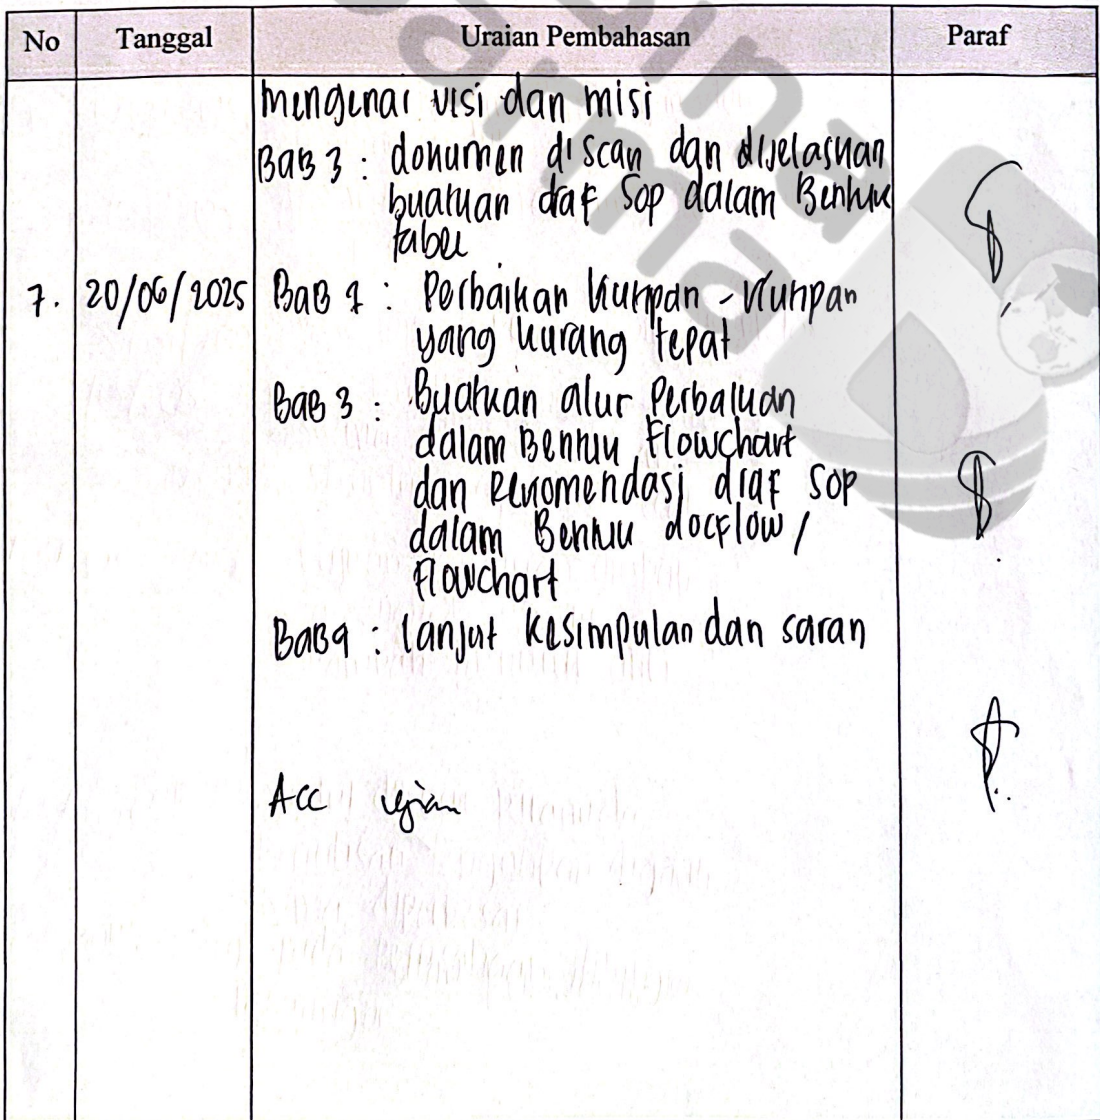 No Tanggal Uraian Pembahasan Paraf
mengenai visi dan misi
Bab 3 : dokumen di scan dan dijelaskan
buatkan draf Sop dalam Bentuk
tabel
7. 20/06/2025 Bab 1 : Perbaikan kutipan - kutipan
yang kurang tepat
Bab 3 : Buatkan alur Perbaikan
dalam Bentuk Flowchart
dan Rekomendasi draf SOP
dalam Bentuk docflow /
Flowchart
Bab 4 : lanjut kesimpulan dan saran
Acc ujian
bina
darma